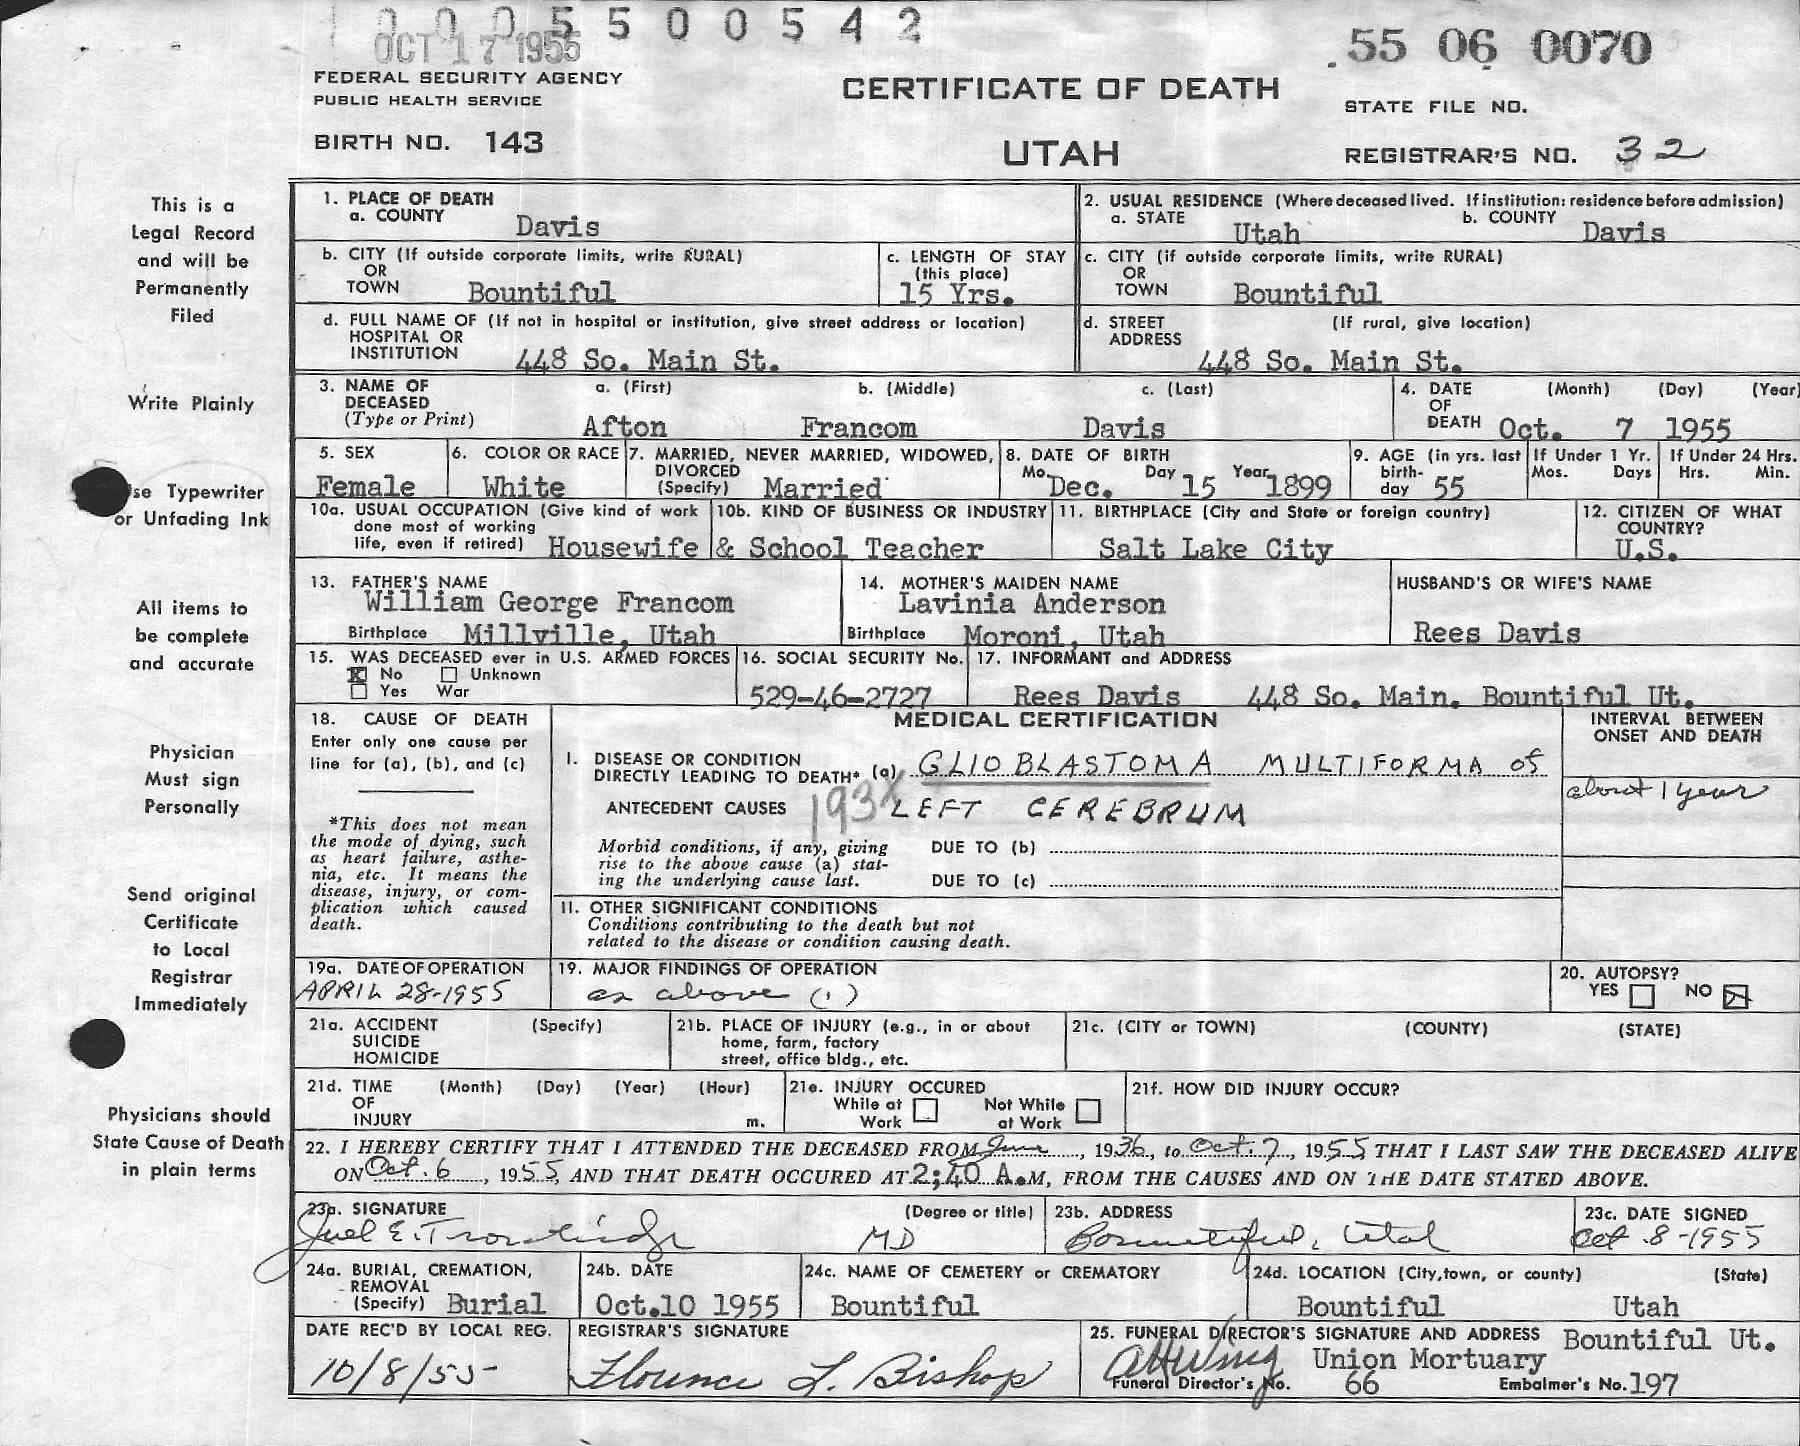 0 0 0 5 5 0 0 5 4 2
OCT 17 1955
55 06 0070
FEDERAL SECURITY AGENCY
PUBLIC HEALTH SERVICE
CERTIFICATE OF DEATH
STATE FILE NO.
BIRTH NO. 143
UTAH
REGISTRAR'S NO. 32
This is a
Legal Record
and will be
Permanently
Filed
Write Plainly
se Typewriter
or Unfading Ink
All items to
be complete
and accurate
Physician
Must sign
Personally
Send original
Certificate
to Local
Registrar
Immediately
Physicians should
State Cause of Death
in plain terms
1. PLACE OF DEATH
a. COUNTY Davis
2. USUAL RESIDENCE (Where deceased lived. If institution: residence before admission)
a. STATE Utah b. COUNTY Davis
b. CITY (If outside corporate limits, write RURAL)
OR
TOWN Bountiful
c. LENGTH OF STAY
(this place)
15 Yrs.
c. CITY (if outside corporate limits, write RURAL)
OR
TOWN Bountiful
d. FULL NAME OF (If not in hospital or institution, give street address or location)
HOSPITAL OR
INSTITUTION 448 So. Main St.
d. STREET (If rural, give location)
ADDRESS
448 So. Main St.
3. NAME OF a. (First) b. (Middle) c. (Last)
DECEASED
(Type or Print) Afton Francom Davis
4. DATE (Month) (Day) (Year)
OF
DEATH Oct. 7 1955
5. SEX
Female
6. COLOR OR RACE
White
7. MARRIED, NEVER MARRIED, WIDOWED,
DIVORCED
(Specify) Married
8. DATE OF BIRTH
Mo. Dec. Day 15 Year 1899
9. AGE (in yrs. last
birth-
day 55
If Under 1 Yr.
Mos. Days
If Under 24 Hrs.
Hrs. Min.
10a. USUAL OCCUPATION (Give kind of work
done most of working
life, even if retired) Housewife
10b. KIND OF BUSINESS OR INDUSTRY
& School Teacher
11. BIRTHPLACE (City and State or foreign country)
Salt Lake City
12. CITIZEN OF WHAT
COUNTRY?
U.S.
13. FATHER'S NAME
William George Francom
Birthplace Millville, Utah
14. MOTHER'S MAIDEN NAME
Lavinia Anderson
Birthplace Moroni, Utah
HUSBAND'S OR WIFE'S NAME
Rees Davis
15. WAS DECEASED ever in U.S. ARMED FORCES
No Unknown
Yes War
16. SOCIAL SECURITY No.
529-46-2727
17. INFORMANT and ADDRESS
Rees Davis 448 So. Main. Bountiful Ut.
18. CAUSE OF DEATH
Enter only one cause per
line for (a), (b), and (c)
*This does not mean
the mode of dying, such
as heart failure, asthe-
nia, etc. It means the
disease, injury, or com-
plication which caused
death.
MEDICAL CERTIFICATION
I. DISEASE OR CONDITION
DIRECTLY LEADING TO DEATH* (a) GLIOBLASTOMA MULTIFORMA of
ANTECEDENT CAUSES 193X LEFT CEREBRUM
Morbid conditions, if any, giving
rise to the above cause (a) stat-
ing the underlying cause last.
DUE TO (b)
DUE TO (c)
INTERVAL BETWEEN
ONSET AND DEATH
about 1 year
11. OTHER SIGNIFICANT CONDITIONS
Conditions contributing to the death but not
related to the disease or condition causing death.
19a. DATE OF OPERATION
APRIL 28-1955
19. MAJOR FINDINGS OF OPERATION
as above (1)
20. AUTOPSY?
YES NO
21a. ACCIDENT (Specify)
SUICIDE
HOMICIDE
21b. PLACE OF INJURY (e.g., in or about
home, farm, factory
street, office bldg., etc.
21c. (CITY or TOWN) (COUNTY) (STATE)
21d. TIME (Month) (Day) (Year) (Hour)
OF
INJURY m.
21e. INJURY OCCURED
While at Not While
Work at Work
21f. HOW DID INJURY OCCUR?
22. I HEREBY CERTIFY THAT I ATTENDED THE DECEASED FROM June, 1936, to Oct. 7, 1955 THAT I LAST SAW THE DECEASED ALIVE
ON Oct. 6, 1955, AND THAT DEATH OCCURED AT 2;40 A.M, FROM THE CAUSES AND ON THE DATE STATED ABOVE.
23a. SIGNATURE (Degree or title)
MD
23b. ADDRESS
Bountiful, Utah
23c. DATE SIGNED
Oct. 8-1955
24a. BURIAL, CREMATION,
REMOVAL
(Specify) Burial
24b. DATE
Oct.10 1955
24c. NAME OF CEMETERY or CREMATORY
Bountiful
24d. LOCATION (City, town, or county) (State)
Bountiful Utah
DATE REC'D BY LOCAL REG.
10/8/55
REGISTRAR'S SIGNATURE
Florence L. Bishop
25. FUNERAL DIRECTOR'S SIGNATURE AND ADDRESS Bountiful Ut.
Union Mortuary
Funeral Director's No. 66 Embalmer's No. 197